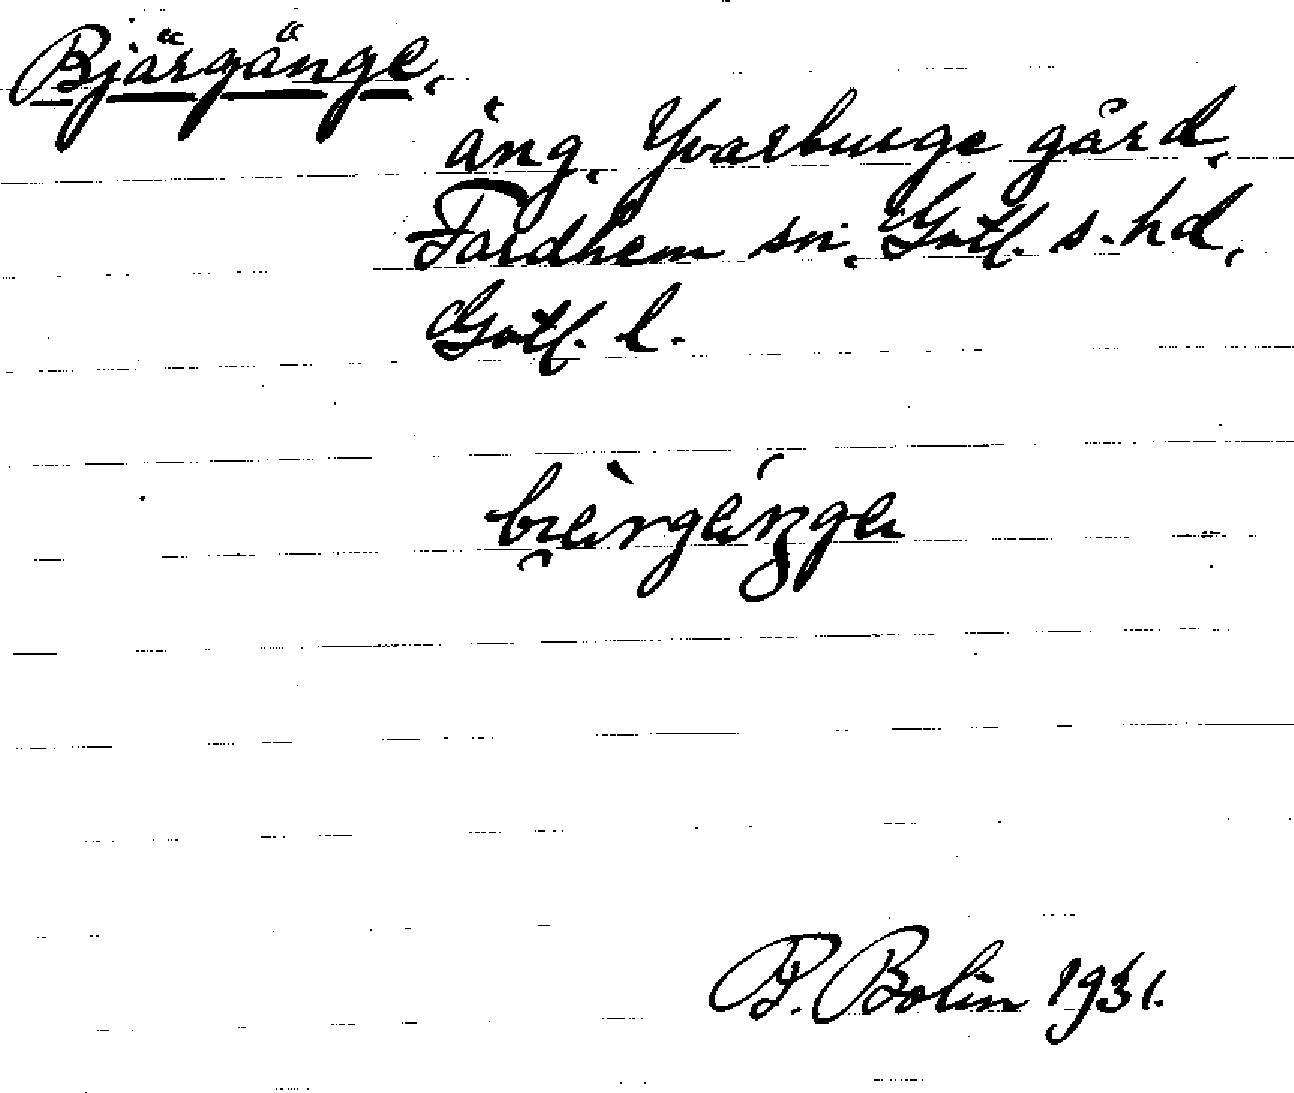 Bjärgänge,
äng, Yvarburge gård,
Fardhem sn, Gotl. s. hd,
Gotl. l.
P. Bolin 1931.